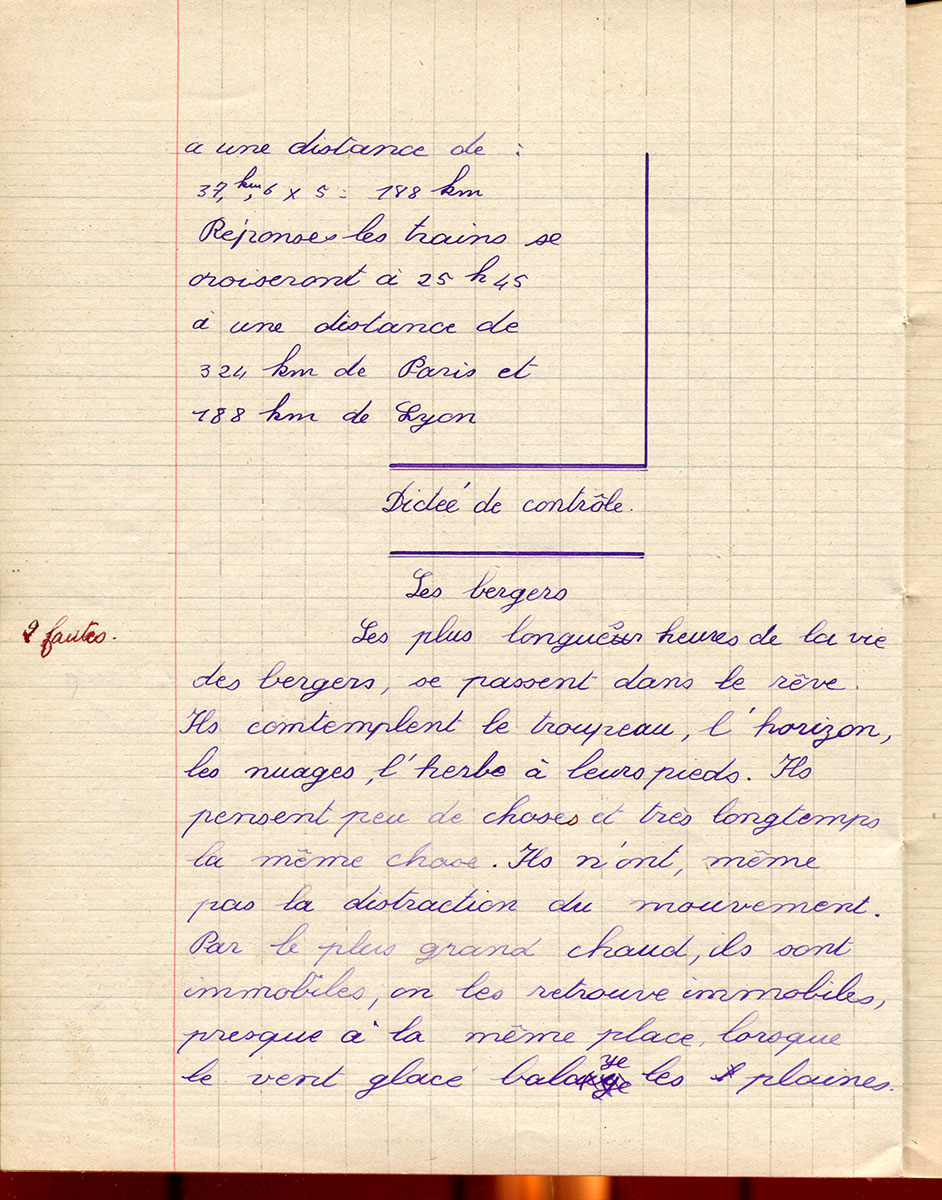 a une distance de :
37,km,6 x 5 = 188 km
Réponses les trains se
croiseront à 25 h 45
à une distance de
324 km de Paris et
188 km de Lyon
Dicteé de contrôle.
Les bergers
2 fautes.
Les plus longues heures de la vie
des bergers, se passent dans le rêve.
Ils comtemplent le troupeau, l'horizon,
les nuages, l'herbe à leurs pieds. Ils
pensent peu de choses et très longtemps
la même chose. Ils n'ont, même
pas la distraction du mouvement.
Par le plus grand chaud, ils sont
immobiles, on les retrouve immobiles,
presque à la même place, lorsque
le vent glacé balaye les plaines.